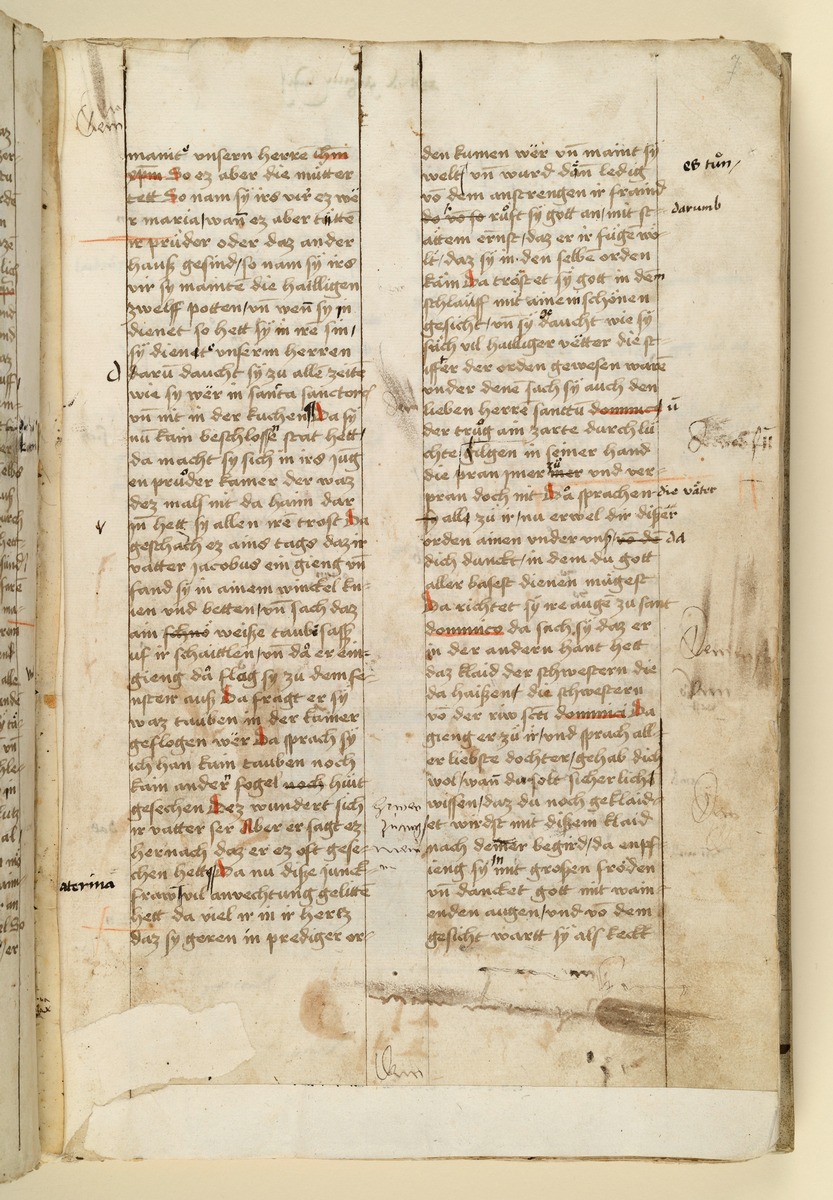 7
maint unsern herrē ihm
xpm So ez aber die mütter
tett So nam sy irs vir ez wē
r maria / wan̄ ez aber tȧttē
ir prüder oder daz ander
hauß gesind / so nam sy irs
vir sy maintē die hailligen
zwelff potten / vn̄ wen̄ sy in
dienet so hett sy in irē sin /
sy dienet unserm herren
darū daucht sy zu allē zeitē
wie sy wër in santa sanctorū
vn̄ nit in der kuchen Da sy
nū kain beschlossē stat hett /
da macht sy sich in irs jūg
en průder kamer der waz
dez mals nit da haim dar
in hett sy allen irē trost Da
geschach ez ains tags daz ir
vatter Jacobus ein gieng vn̄
fand sy in ainem winckel kn-
ien vnd betten / vn̄ sach daz
ain weiße taube saß
uf ir schaittlen / vn̄ da er ein-
gieng da flög sy zu dem fe-
nster auß Da fragt er sy
waz tauben in der kamer
geflogen wër Da sprach sy
ich han kain tauben noch
kain ander fogel noch hüt
gesechen Dez wundert sich
ir vatter ser Aber er sagt ez
hernach daz er ez oft gese-
chen hett / Da nu diße junck
fraw / vil anvechtung gelitte
hett da viel ir in ir hertz
daz sy geren in prediger or-
aterina
den kumen wër vn̄ maint sy
welt / vn̄ wurd dan̄ ledig
vō dem anstrengen ir fraind
es tůn /
darumb
růft sy gott an / mit st-
aittem ernst / daz er ir fügē wo-
lt / daz sy in den selbē orden
käm Da tröstet sy gott in dem
schlauff mit ainem schönen
gesicht / vn̄ sy daucht wie sy
säch vil hailiger vëtter die st-
iffter der orden gewesen warē
vnder denē sach sy auch den
lieben herrē sanctū dominicū
der trůg ain zarte durchlü
chte gilgen in seiner hand
die pran imer zu und ver-
pran doch nit Da sprachen die väter
alle zů ir / nu erwel dir dißer
orden ainen under unß / da
dich dunckt / in dem du gott
aller basest dienen mügest
Da richtet sy ire auge zu sant
dominico da sach sy daz er
in der andern hant hett
daz klaid der schwestern die
da haißen / die schwestern
vō der rüw scti dominici Da
gieng er zu ir / und sprach all-
er liebste dochter / gehab dich
wol / wan̄ du solt sicherlich
wissen / daz du noch geklaid-
et wirdst mit dißem klaid
nach deiner begird / da enpf-
ieng sy in mit großen fröden
vn̄ dancket gott mit wain
enden augen / und vō dem
gesicht wartt sy als keckt